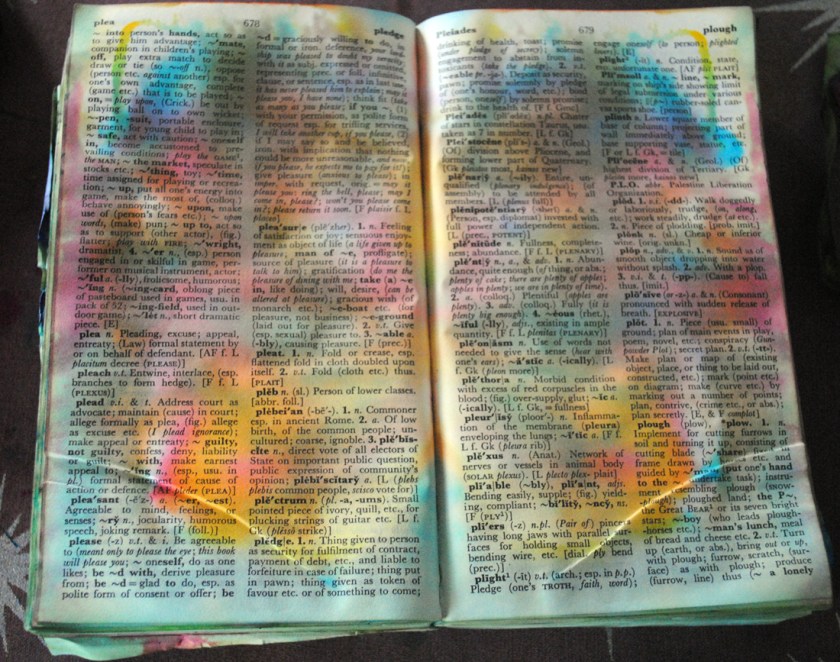 plea
678
pledge
~ into person's hands, act so as
to give him advantage; ~'mate,
companion in children's playing; ~
off, play extra match to decide
draw or tie (so ~-off n.), oppose
(person etc. against another) esp. for
one's own advantage, complete
(game etc.) that is to be played; ~
on, = play upon, (Crick.) be out by
playing ball on to own wicket
~-pen, -suit, portable enclosure,
garment, for young child to play in;
~ safe, act with caution; ~
in, become accustomed to pre-
vailing conditions; play the GAME¹,
the MAN; ~ the market, speculate in
stocks etc.; ~'thing, toy; ~'time,
time assigned for playing or recrea-
tion; ~ up, put all one's energy into
game, make the most of, (colloq.)
behave annoyingly; ~ upon, make
use of (person's fears etc.); ~ upon
words, (make) pun; ~ up to, act so
as to support (other actor), (fig.)
flatter; play with FIRE; ~'wright,
dramatist. 4. ~'er n. (esp.) person
engaged in or skilful in game, per-
former on musical instrument, actor;
~'ful a. (-lly), frolicsome, humorous
~'ing n. (~ing-card, oblong piece
of pasteboard used in games, usu. in
pack of 52; ~ing-field, used in out-
door game); ~'lét n., short dramatic
piece. [E]
plea n. Pleading, excuse; appeal,
entreaty; (Law) formal statement by
or on behalf of defendant. [AF f. L
placitum decree (PLEASE)]
pleach v.t. Entwine, interlace, (esp.
branches to form hedge). [F f. L
(PLEXUS)]
plead v.i. & t. Address court as
advocate; maintain (cause) in court;
allege formally as plea, (fig.) allege
as excuse etc. (I plead ignorance);
make appeal or entreaty; ~ guilty,
not guilty, confess, deny, liability
or guilt; ~ with, make earnest
appeal to; ~'ing n., (esp., usu. in
pl.) formal statement of cause of
action or defence. [AF (PLEA)]
plea'sant a. (~er, ~est).
Agreeable to mind, feelings, or
senses; ~rў n., jocularity, humorous
speech, joking remark. [F (foll.)]
please (-z) v.t. & i. Be agreeable
to (meant only to please the eye; this book
will please you; ~ oneself, do as one
likes; be ~d with, derive pleasure
from; be ~d = glad to do, esp. as
polite form of consent or offer; be
~d = graciously willing to do, in
formal or iron. deference,
representing prec. or full. infinitive
clause, or sentence, esp. as in last use,
it has never pleased him to explain; may it
please you, I have none); think fit (take
as many as you please; if you ~,
with your permission, as polite form
of request esp. for trifling services,
I will take another cup, if you please, (2)
if I may say so and be believed,
iron. with implication that nothing
could be more unreasonable,
give pleasure (anxious to please);
imper. with request, orig. = may it
please you; ring the bell, please; may I
come in, please?; won't you please come
in?; please return it soon. [F plaisir f. L
placeo]
plea'sur|e (plĕ'zher). 1. n. Feeling
of satisfaction or joy; sensuous enjoy-
ment as object of life (a life given up to
pleasure, man of ~e, profligate);
source of pleasure (it is a pleasure to
talk to him); gratification (do me the
pleasure of dining with me; take (a) ~e
in, like doing); will, desire, (can be
altered at pleasure); gracious wish (of
monarch etc.); ~e-boat etc. (for
pleasure, not business) ; ~e-ground
(laid out for pleasure). 2. v.t. Give
(esp. sexual) pleasure to. 3. ~able a.
(-bly), causing pleasure. [F (prec.)]
pleat. 1. n. Fold or crease, esp.
flattened fold in cloth doubled upon
itself. 2. v.t. Fold (cloth etc.) thus.
[PLAIT]
plĕb n. (sl.) Person of lower classes.
[abbr. foll.]
plèbei'an (-bē'-). 1. n. Commoner
esp. in ancient Rome. 2. a. Of low
birth, of the common people; un-
cultured; coarse, ignoble. 3. plĕ'bĭs-
cīte n., direct vote of all electors of
State on important public question,
public expression of community's
opinion; plébi'scitarў a. [L (plebs
plebis common people, scisco vote for)]
plĕ'ctrum n. (pl. -a, -ums). Small
pointed piece of ivory, quill, etc., for
plucking strings of guitar etc. [L f.
Gk (plēssō strike)]
plĕdg|e. 1. n. Thing given to person
as security for fulfilment of contract,
payment of debt, etc., and liable to
forfeiture in case of failure; thing put
in pawn; thing given as token of
favour etc. or of something to come;
Pleiades
679
plough
drinking of health, toast; promise
(under pledge of secrecy); solemn
engagement to abstain from in-
toxicants (take the pledge). 2. v.t.
(~eable pr. -ja-). Deposit as security,
pawn; promise solemnly by pledge
(one's honour, word, etc.); bind
(person, oneself) by solemn promise;
drink to the health of [F f. Gmc]
Plei'adēs (plī'adēz) n. pl. Cluster
of stars in constellation Taurus, usu.
taken as 7 in number. [L f. Gk]
Plei'stocēne (plī's-) a. & n. (Geol.)
(Of) division over Pliocene, and
forming lower part of Quaternary.
[Gk pleistos most, kainos new]
plē'narў a. Entire, un-
qualified (plenary indulgence); (of
assembly) to be attended by all
members. [L (plenus full)]
plĕnipotĕ'ntiarў (-sherĭ) a. & n.
(Person, esp. diplomat) invested with
full power of independent action.
[L (prec., POTENT)]
plĕ'nĭtūde n. Fullness, complete-
ness; abundance. [F f. L (PLENARY)]
plĕ'nt|ў n., a., & adv. 1. n. Abun-
dance, quite enough (of thing, or abs.;
plenty of cake; there are plenty of apples;
apples in plenty; we are in plenty of time).
2. a. (colloq.) Plentiful (apples are
plenty). 3. adv. (colloq.) Fully (it is
plenty big enough). 4. ~ėous (rhet.),
~iful (-lly), adjs., existing in ample
quantity, [F f. L plenitas (PLENARY)]
plē'onăsm n. Use of words not
needed to give the sense (hear with
one's ears); ~ă'stic a. (-ically). [L f.
Gk (pleon more)]
plĕ'thora n. Morbid condition
with excess of red corpuscles in the
blood; (fig.) over-supply, glut; ~ĭc a.
(-ically). [L f. Gk, = fullness]
pleur'isў (ploor'-) n. Inflamma-
tion of the membrane (pleura)
enveloping the lungs; ~ĭ'tic a. [F f.
L f. Gk (pleura rib)]
plĕ'xus n. (Anat.) Network of
nerves or vessels in animal body
(SOLAR plexus). [L plecto plex- plait]
plī'a|ble (-bly), plī'a|nt, adjs.
Bending easily, supple; (fig.) yield-
ing, compliant; ~bĭ'lĭtў, ~ncў, ns.
[F (PLY)]
plī'ers (-z) n.pl. (Pair of) pincers
having long jaws with parallel sur-
faces for holding small objects,
bending wire, etc. [dial. ply bend
(prec.)]
plight¹ (-īt) v.t. (arch.; esp. in p.p.)
Pledge (one's TROTH, faith, word);
engage oneself (to person; plighted
lovers). [E]
plight² (-īt) n. Condition, state,
esp. unfortunate one. [AF plit PLAIT]
Pli'msoll a. & n. ~ line, ~ mark,
marking on ship's side showing limit
of legal submersion under various
conditions; (p~) rubber-soled can-
vas sports shoe. [person]
plinth n. Lower square member of
base of column; projecting part of
wall immediately above ground;
base supporting vase, statue, etc.
[F or L f. Gk, = tile]
Plī'ocēne a. & n. (Geol.) (Of)
highest division of Tertiary. [Gk
pleion more, kainos new]
P.L.O. abbr. Palestine Liberation
Organization.
plŏd. 1. v.i. (-dd-). Walk doggedly
or laboriously, trudge, (on, along,
etc.); work steadily, drudge (at etc.).
2. n. Piece of plodding. [prob. imit.]
plonk n. (sl.) Cheap or inferior
wine. [orig. unkn.]
plŏp n., adv., & v. 1. n. Sound as of
smooth object dropping into water
without splash. 2. adv. With a plop.
3. v.i. & t. (-pp-). (Cause to) fall
thus. [imit.]
plō'sive (or -z-) a. & n. (Consonant)
pronounced with sudden release of
breath. [EXPLOSIVE]
plŏt. 1. n. Piece (usu. small) of
ground; plan of main events in play,
poem, novel, etc.; conspiracy (Gun-
powder Plot); secret plan. 2. v.t. (-tt-).
Make plan or map of (existing
object, place, or thing to be laid out,
constructed, etc.); mark (point etc.)
on diagram; make (curve etc.) by
marking out a number of points;
plan, contrive, (crime etc., or abs.);
plan secretly. [E, & F complot]
plough, *plow. 1. n.
Implement for cutting furrows in
soil and turning it up, consisting of
cutting blade (~'share) fixed in
frame drawn by
guided by ~'man; (put one's hand
to the ~, undertake task); instru-
ment resembling plough (snow-
plough); ploughed land; the P~,
the Great BEAR¹ or its seven bright
stars; ~-boy (who leads plough-
-horses etc.); ~man's lunch, meal
of bread and cheese etc. 2. v.t. Turn
up (earth, or abs.), bring out or up,
with plough; furrow, scratch, (sur-
face) as with plough; produce
(furrow, line) thus (~ a lonely